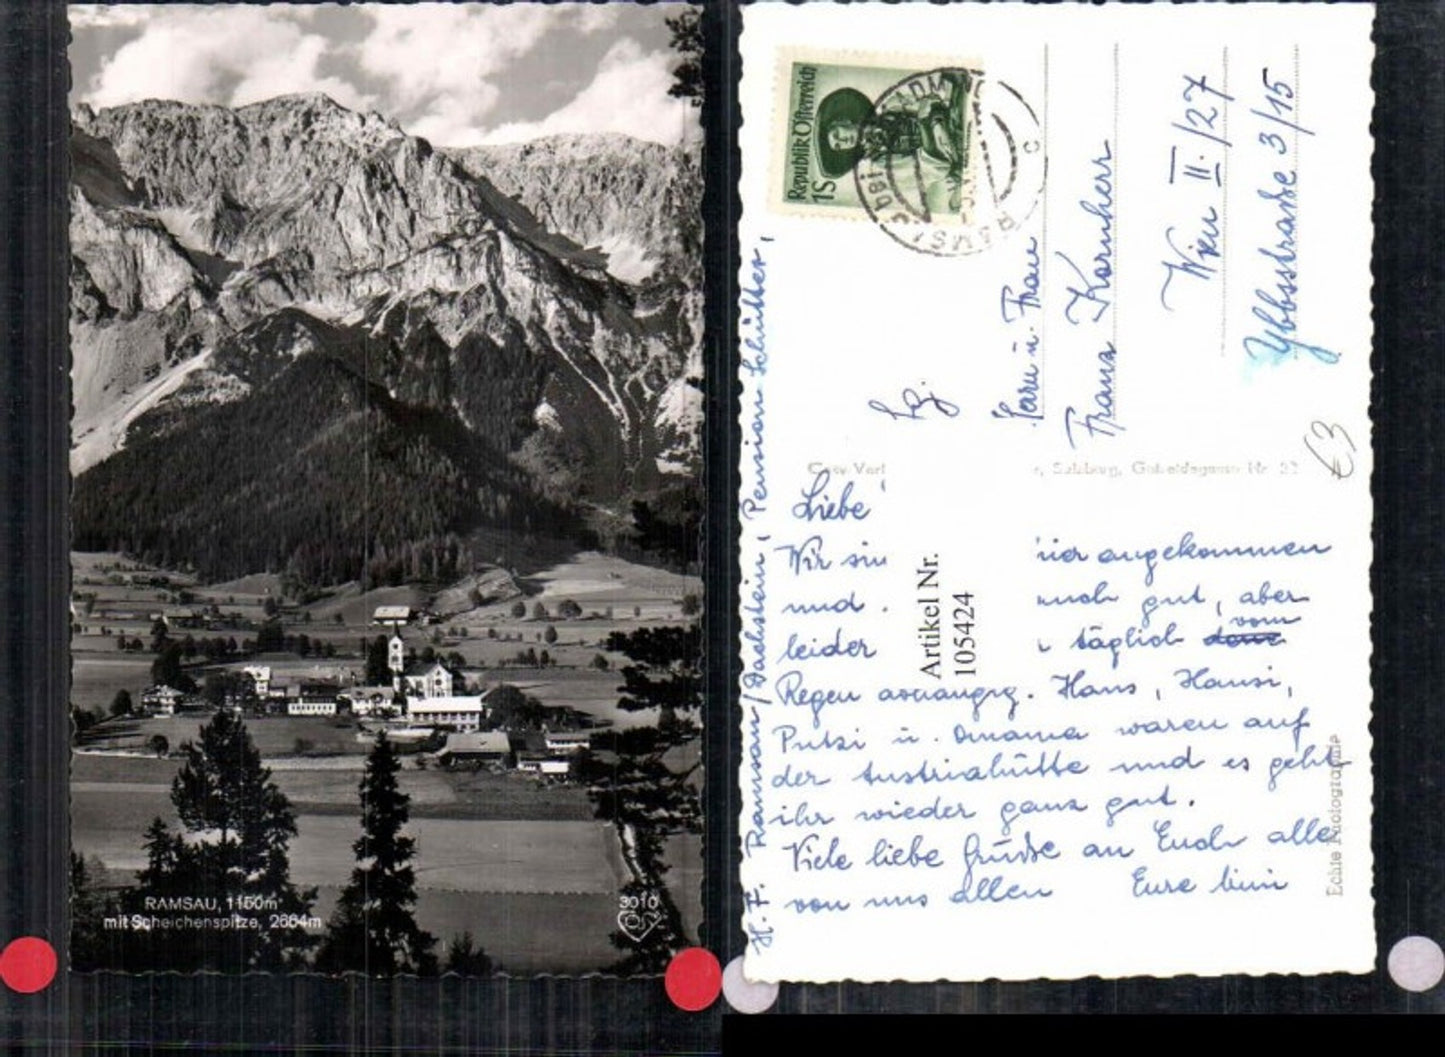 RAMSAU, 1150m
mit Scheichenspitze, 2664m
3010
Republik Österreich
1S
RAMSAU
Herrn u. Frau
Franz Kornherr
Wien II./27
Ybbsstraße 3/15
€3
Salzburg, Gabelsbgasse Nr.
Liebe
Wir sin hier angekommen
und . auch gut, aber
leider täglich vom
Regen abhängig. Hans, Hansi,
Putzi u. Omama waren auf
der Austriahütte und es geht
ihr wieder ganz gut.
Viele liebe Grüße an Euch alle
von uns allen Eure
Artikel Nr.
105424
Ramsau/Dachstein, Pension Schütter,
Echte Photographie